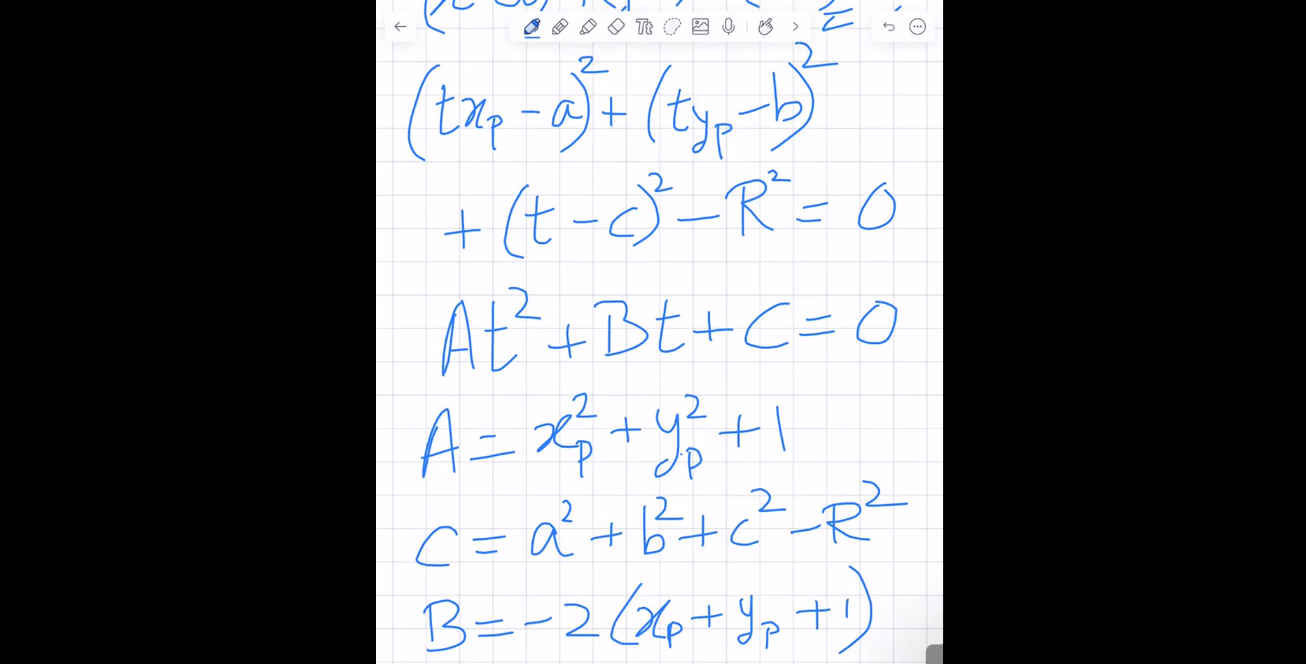 (tx_p - a)^2 + (ty_p - b)^2
+ (t - c)^2 - R^2 = 0
At^2 + Bt + C = 0
A = x_p^2 + y_p^2 + 1
C = a^2 + b^2 + c^2 - R^2
B = -2(x_p + y_p + 1)